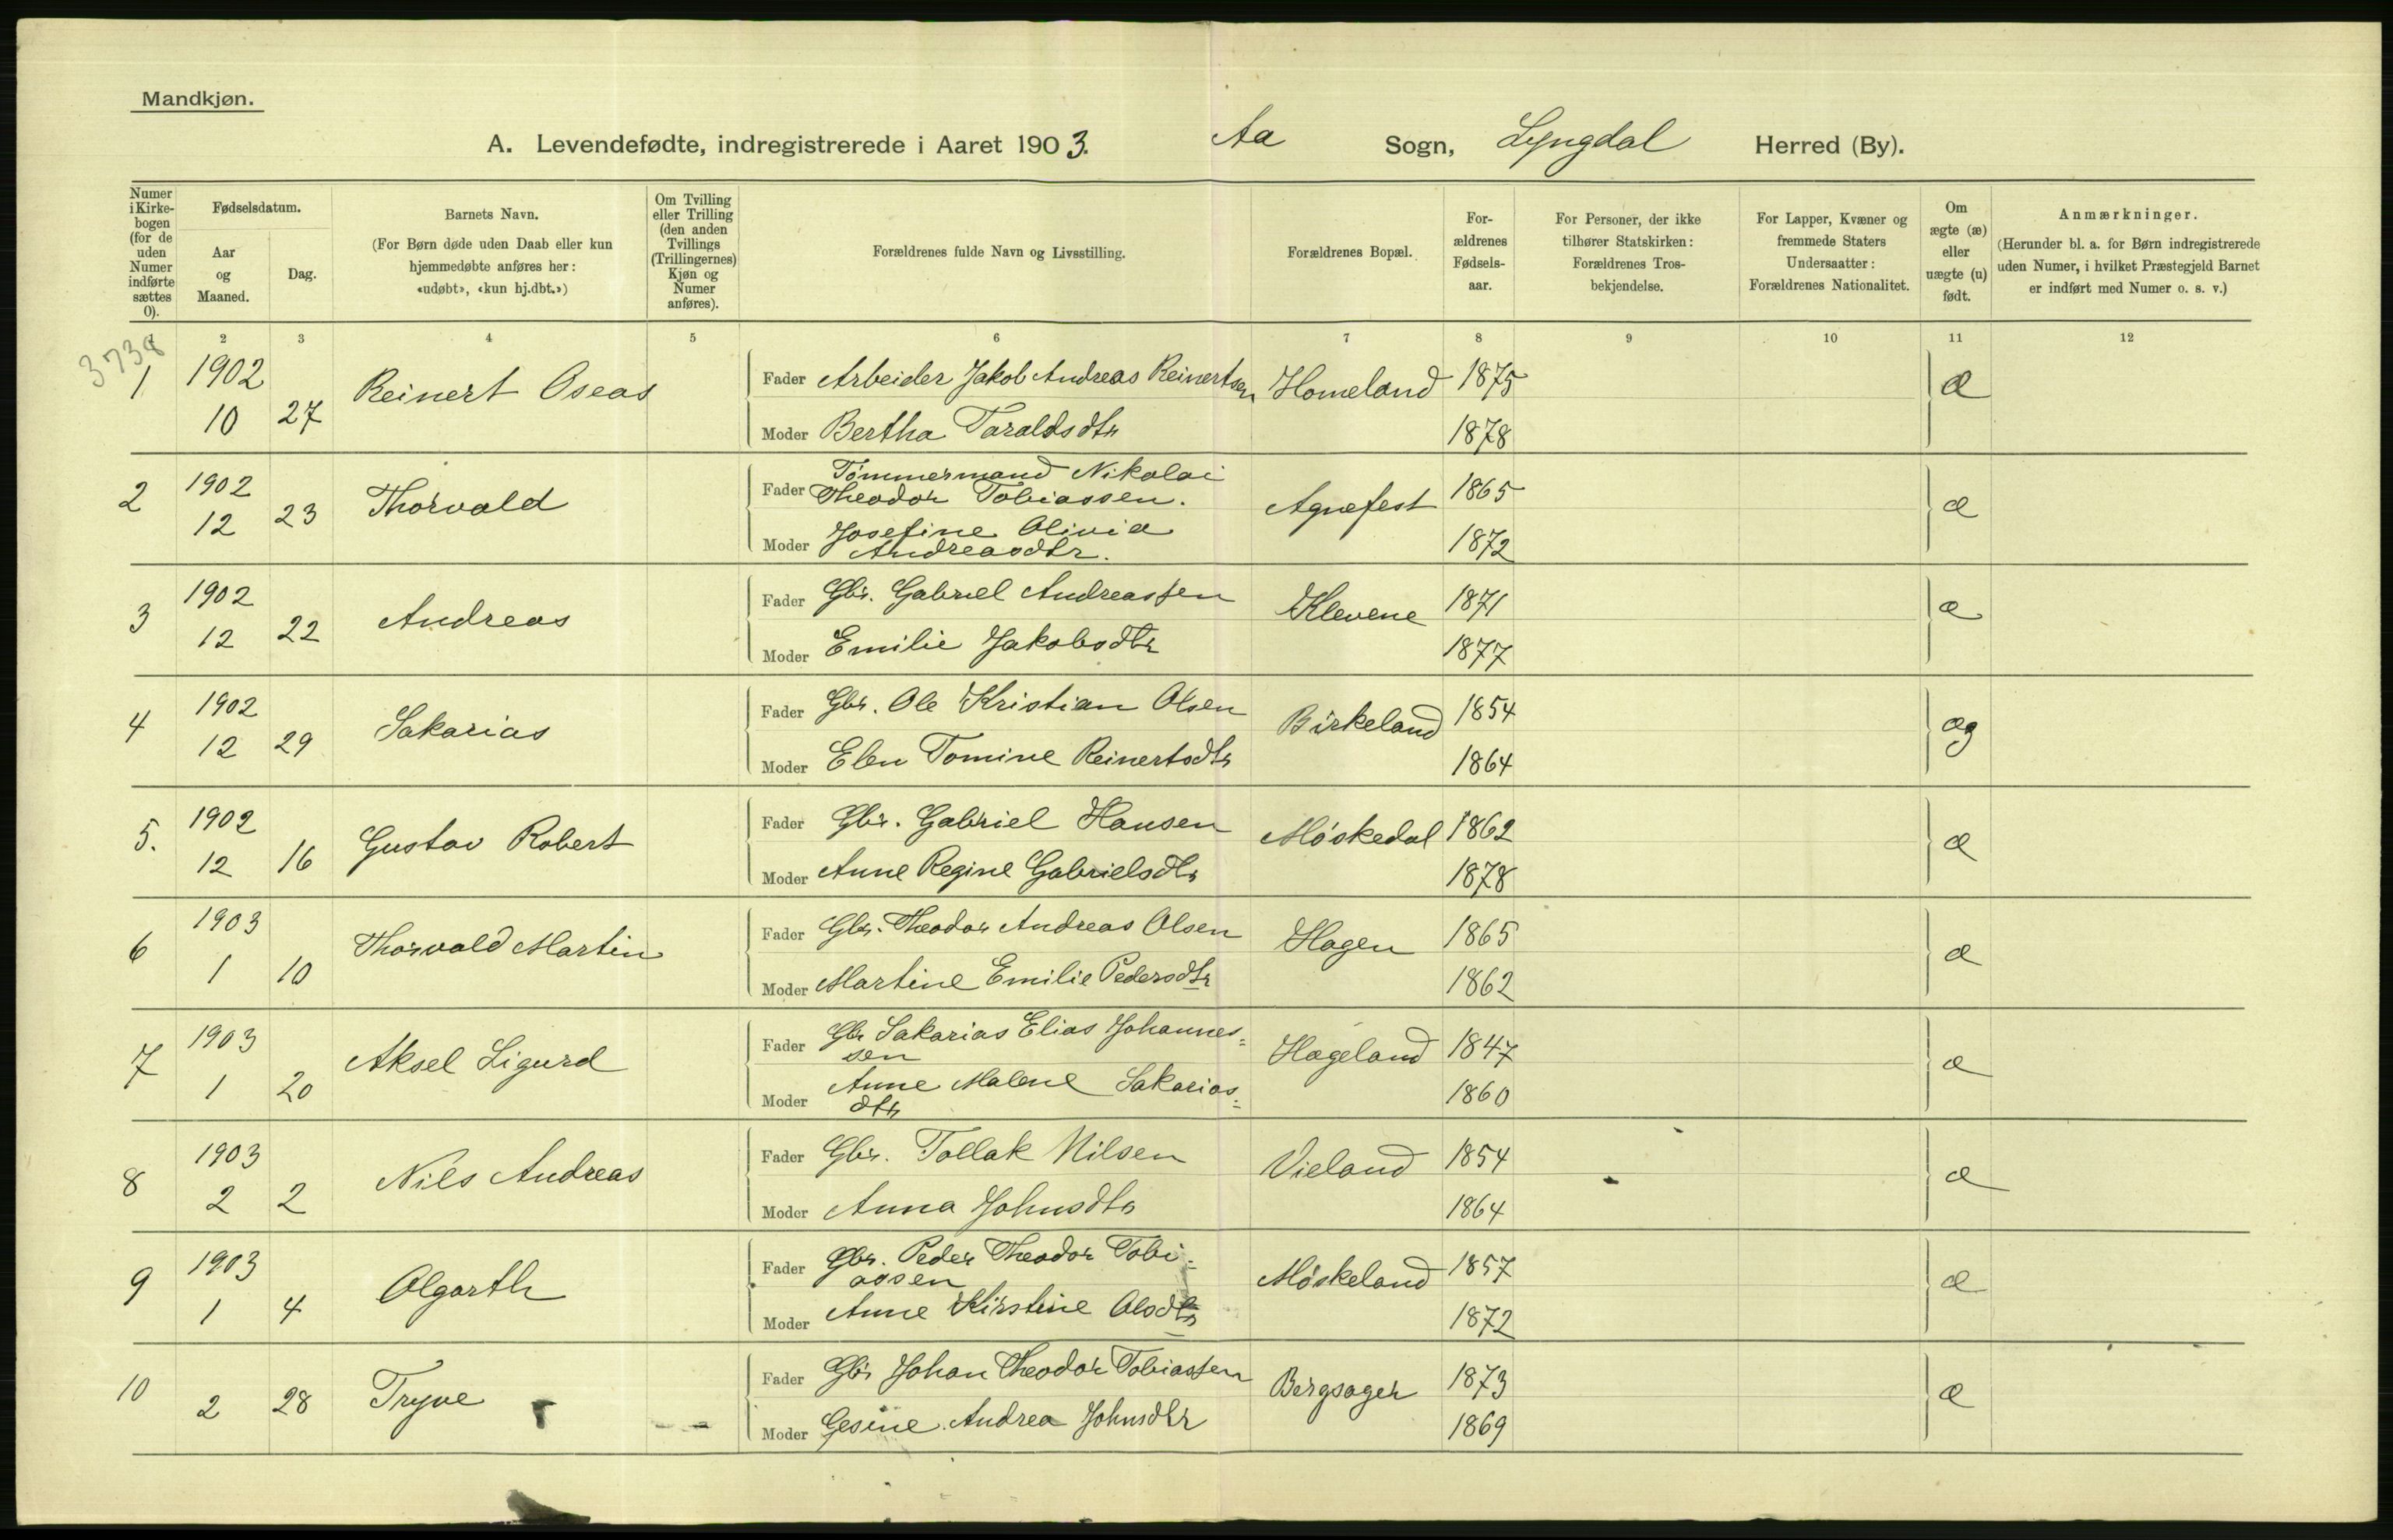 Mandkjøn.
A. Levendefødte, indregistrerede i Aaret 1903. Aa Sogn, Lyngdal Herred (By).
Numer i Kirkebogen (for de uden Numer indførte sættes 0).
Fødselsdatum.
Aar og Maaned.
Dag.
Barnets Navn.
(For Børn døde uden Daab eller kun hjemmedøbte anføres her: «udøbt», «kun hj.dbt.»)
Om Tvilling eller Trilling (den anden Tvillings (Trillingernes) Kjøn og Numer anføres).
Forældrenes fulde Navn og Livsstilling.
Forældrenes Bopæl.
Forældrenes Fødselsaar.
For Personer, der ikke tilhører Statskirken: Forældrenes Trosbekjendelse.
For Lapper, Kvæner og fremmede Staters Undersaatter: Forældrenes Nationalitet.
Om ægte (æ) eller uægte (u) født.
Anmærkninger.
(Herunder bl. a. for Børn indregistrerede uden Numer, i hvilket Præstegjeld Barnet er indført med Numer o. s. v.)
1 2 3 4 5 6 7 8 9 10 11 12
3738
1 1902 10 27 Reinert Oseas Fader Arbeider Jakob Andreas Reinertsen Homeland 1875 æ
Moder Bertha Taraldsdtr 1878
2 1902 12 23 Thorvald Fader Tømmermand Nikolai
Theodor Tobiassen. Agnefest 1865 æ
Moder Josefine Olivia
Andreasdtr. 1872
3 1902 12 22 Andreas Fader Gbr. Gabriel Andreassen Klevene 1871 æ
Moder Emilie Jakobsdtr 1877
4 1902 12 29 Sakarias Fader Gbr. Ole Kristian Olsen Birkeland 1854 æg
Moder Elen Tomine Reinertsdtr 1864
5. 1902 12 16 Gustav Robert Fader Gbr. Gabriel Hansen Møskedal 1862 æ
Moder Anne Regine Gabrielsdtr 1878
6 1903 1 10 Thorvald Martin Fader Gbr. Theodor Andreas Olsen Hagen 1865 æ
Moder Martine Emilie Pedersdtr 1862
7 1903 1 20 Aksel Sigurd Fader Gbr Sakarias Elias Johannes=
sen Hægeland 1847 æ
Moder Anne Malene Sakarias=
dtr 1860
8 1903 2 2 Nils Andreas Fader Gbr. Tollak Nilsen Vieland 1854 æ
Moder Anna Johnsdtr 1864
9 1903 1 4 Olgarth Fader Gbr. Peder Theodor Tobi=
assen Møskeland 1857 æ
Moder Anne Kirstine Olsdtr 1872
10 2 28 Trygve Fader Gbr Johan Theodor Tobiassen Bergsager 1873 æ
Moder Gesine Andrea Johnsdtr 1869